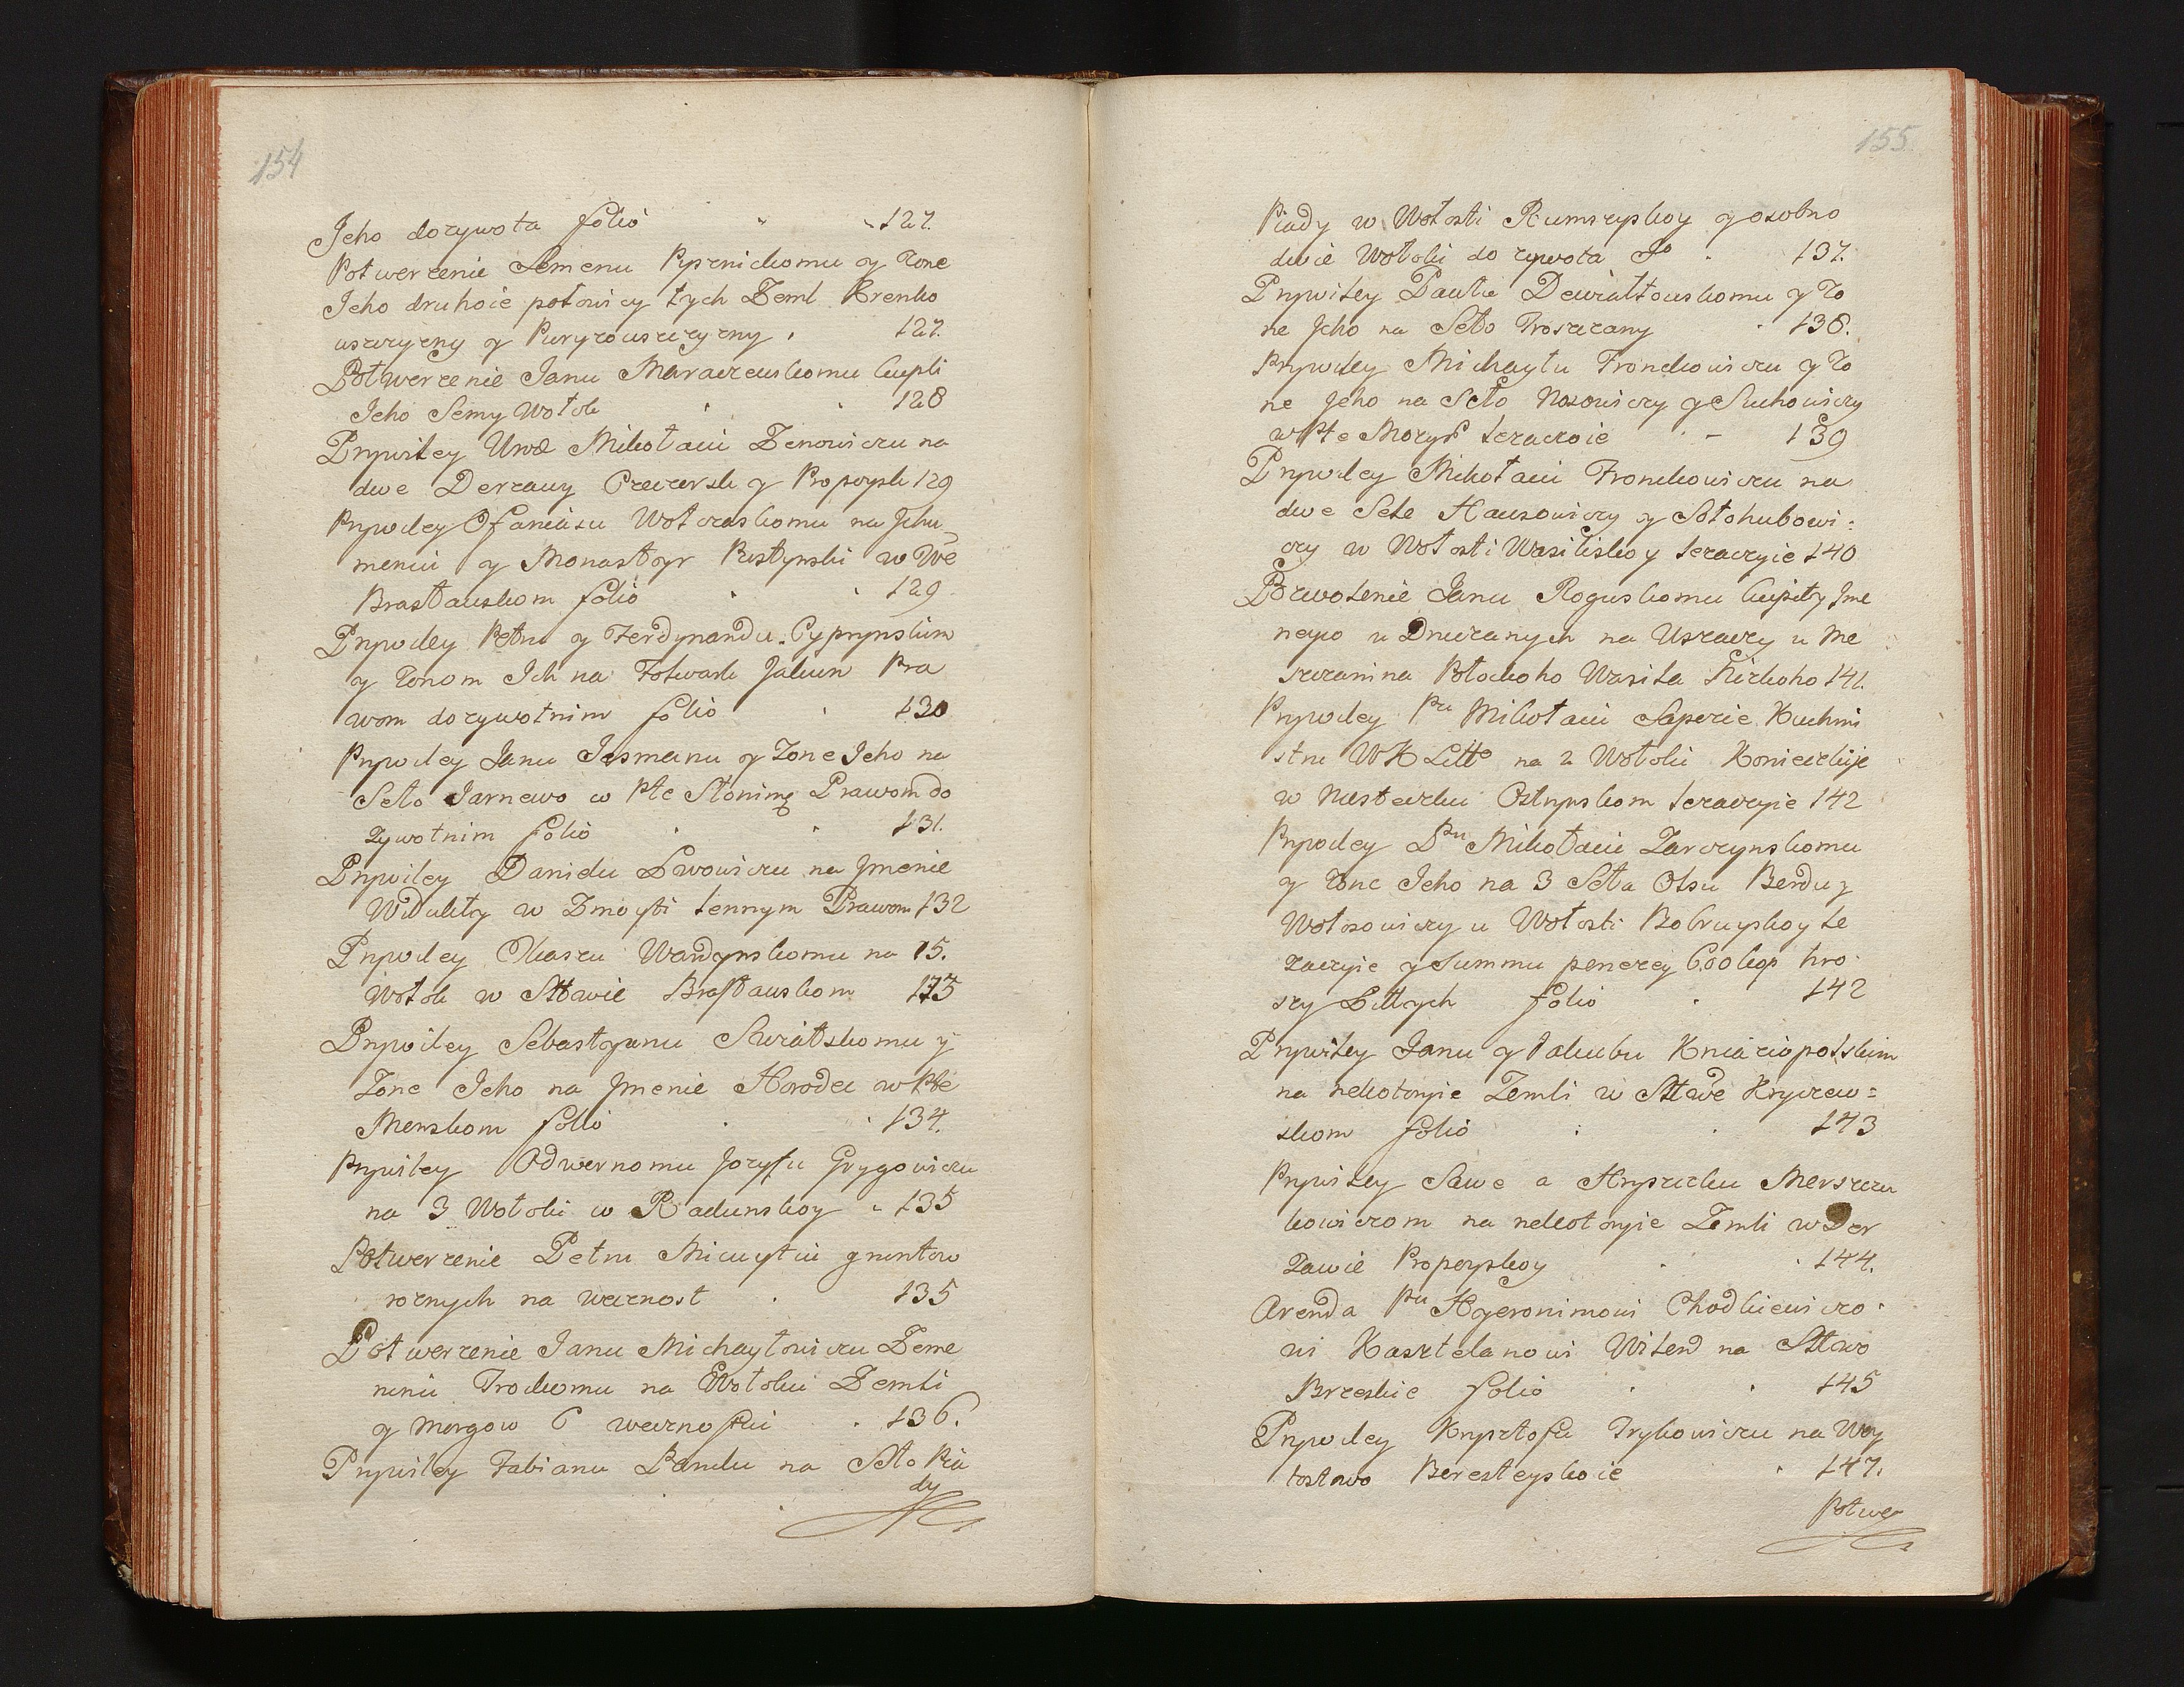 154
Jeho dozywota folio 127.
Potwerzenie Semenu Pyrnickomu y Zone
Jeho druhoie połowicy tych Zeml Krenko
wszczyzny y Puryzowszczyzny 127.
Potwerzenie Janu Maraczewskomu kupli
Jeho Semy Wołok 128
Prywiley Urod Mikołaiu Zenowiczu na
dwe Derzawy Czeczersk y Propoysk 129
Prywiley Ofanasu Wołczaskomu na Jhu
meniu y Monastyr Pustynski w Wwe
Brasławskom folio 129
Prywiley Petru y Ferdynandu Cyprynskim
y Zonom Ich na Folwark Jakun Pra
wom dozywotnim folio 130
Prywiley Janu Jesmanu y Zone Jeho na
Seło Jarnewo w Pte Słonimę Prawom do
zywotnim folio 131.
Prywiley Danielu Lwowiczu na Jmenie
Widukły w Zmoydi lennym Prawom 132
Prywiley Łukaszu Wardynskomu na 15.
Wołok w Sttawie Brasławskom 133
Prywiley Sebastyanu Swiatskomu y
Zone Jeho na Jmenie Horodec w Pte
Menskom folio 134.
Prywiley Odwernomu Jozyfu Grygowiczu
na 3 Wołoki w Radunskoy 135
Potwerzenie Petru Micuytiu gruntow
roznych na wecznost 135
Potwerzenie Janu Michayłowiczu Zeme
ninu Trockomu na Wołoku Zemli
y morgow 6 wecznostiu 136.
Prywiley Fabianu Lendu na Seło Pia
dy
155
Piady w Wołosti Rumszyskoy y osobno
dwie Wołoki do zywota Jo 137.
Prywiley Pawłu Dewiałtowskomu y Zo
ne Jeho na Seło Troszczany 138.
Prywiley Michayłu Fronckowiczu y Zo
ne Jeho na Seło Nosowiczy y Suchowiczy
w Pte Mozyr lezaczoie 139
Prywiley Mikołaiu Fronckowiczu na
dwe Sele Hauzowiczy y Sołohubowi:
czy w Wołosti Wasiliskoy lezaczyie 140
Pozwolenie Janu Roguskomu kupity Jme
neyco u Druczanych na Uszaczy u me
szczanina Połockoho Wasila Zirkoho 141.
Prywiley Pu Mikołaiu Sapezie Kuchmi
stru WX Litto na 2 Wołoki Koniecckije
w Mesteczku Ostrynskom lezaczyie 142
Prywiley Pu Mikołaiu Zarczynskomu
y Zone Jeho na 3 Seła Olsu Berdu y
Wołosowiczy u Wołosti Bobruyskoy le
zaczyie y Summu penezey 600 kop hro
szy Littych folio 142
Prywiley Janu y Jakubu Kniaziopolskim
na nekotoryie Zemli w Sttwe Kryczew=
skom folio 143
Prywiley Sawe a Hryszku Merszczu
kowiczom na nekotoryie Zemli w Der
zawie Propoyskoy 144.
Arenda Pu Hyeronimowi Chodkiewiczo
wi Kasztelanowi Wilend na Sttwo
Brzeskie folio 145
Prywiley Krysztofu Frykowiczu na Woy
tostwo Beresteyskoie 147.
Potwer